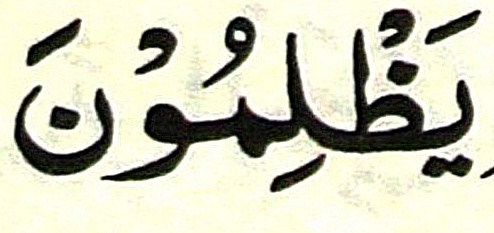 يَظْلِمُوْنَ